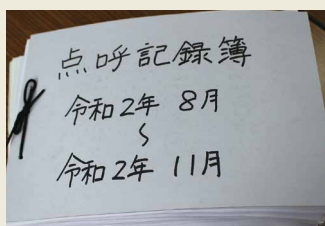 点呼記録簿
令和2年 8月
～
令和2年 11月